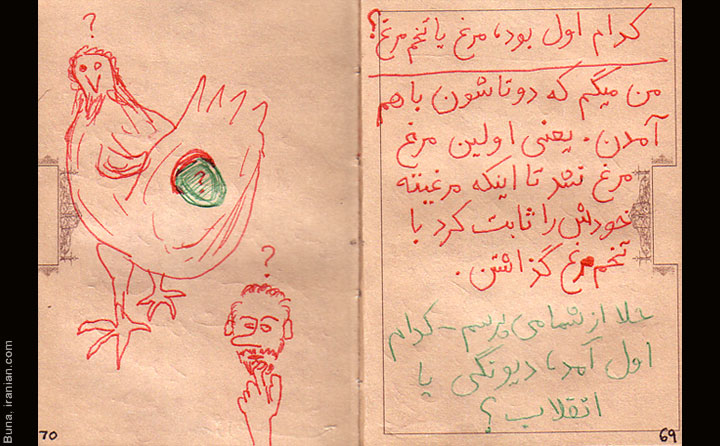 کدام اول بود، مرغ یا تخم مرغ؟
من میگم که دوتاشون با هم
آمدن. یعنی اولین مرغ
مرغ نشد تا اینکه مرغیته
خودش را ثابت کرد با
تخم مرغ گذاشتن.
حالا از شما می پرسم - کدام
اول آمد، دیونگی یا
انقلاب؟
69
?
?
?
70
Buna, iranian.com